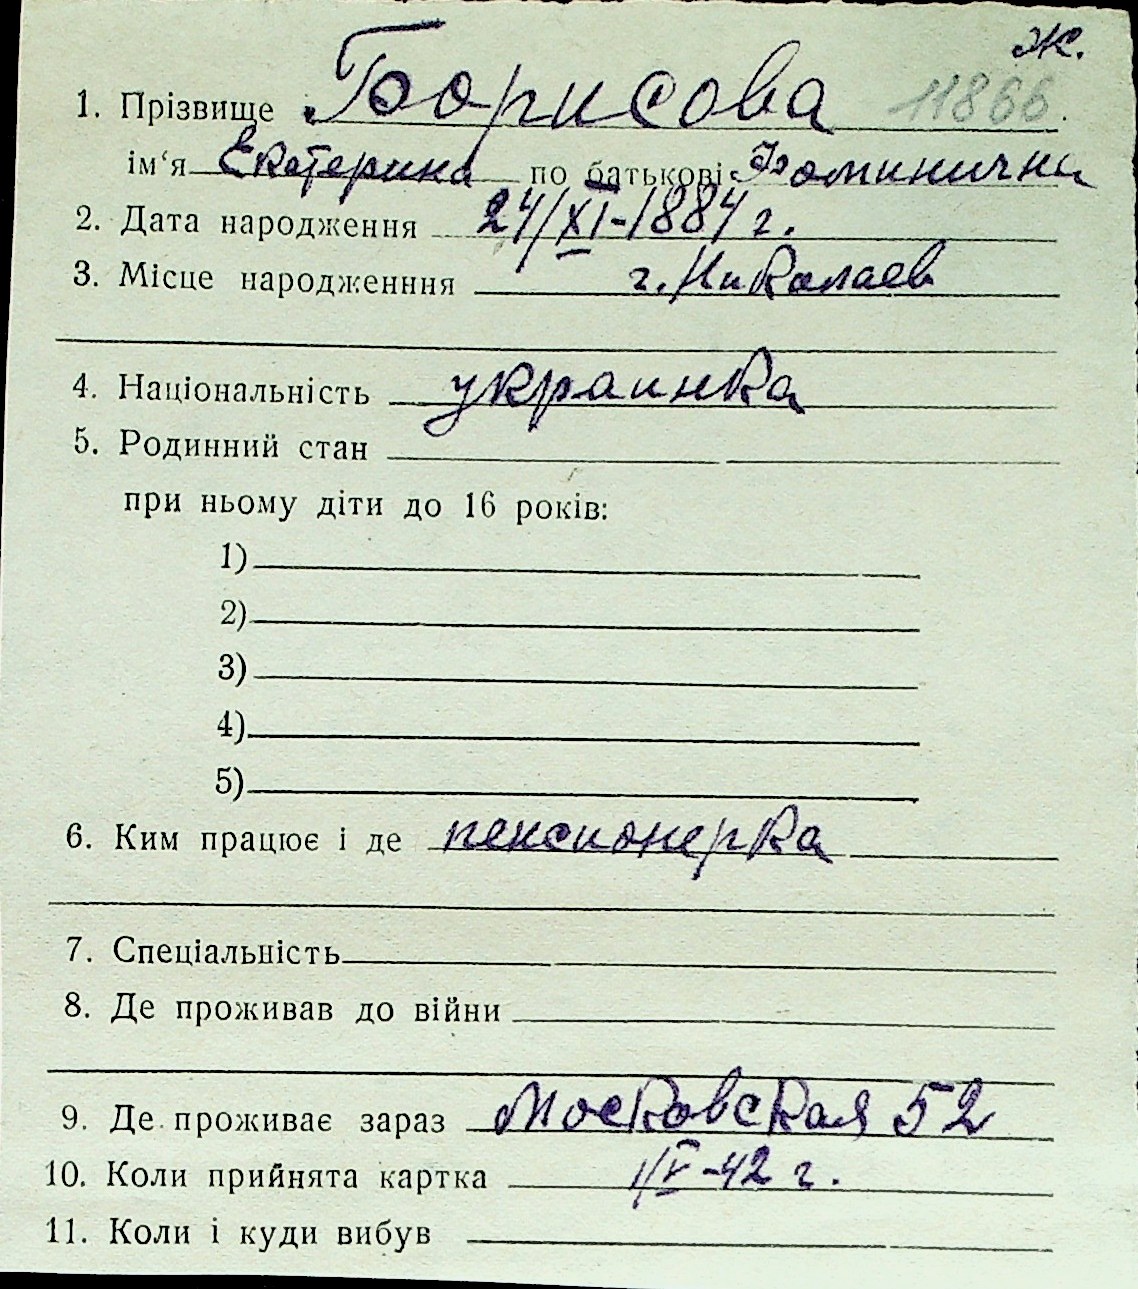 ж.
1. Прізвище Борисова 11866
ім‘я Екатерина по батькові Фоминична
2. Дата народження 24/XI-1884 г.
3. Місце народженння г. Николаев
4. Національність украинка
5. Родинний стан
при ньому діти до 16 років:
1)
2)
3)
4)
5)
6. Ким працює і де пенсионерка
7. Спеціальність
8. Де проживав до війни
9. Де проживає зараз Московская 52
10. Коли прийнята картка 1/V-42 г.
11. Коли і куди вибув